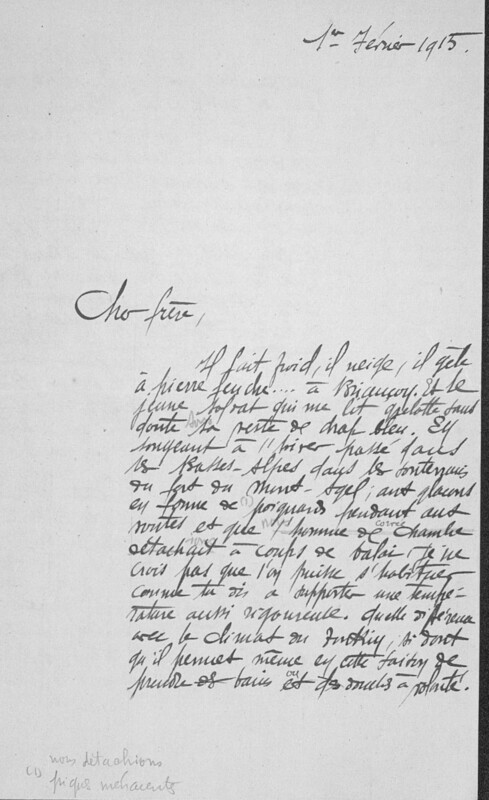 1er Février 1915.
Cher frère,
Il fait froid, il neige, il gèle
à pierre fendre.... à Briançon. Et le
jeune soldat qui me lit grelotte sans
doute sa veste de drap bleu. En
songeant à l'hiver passé dans
les Basses-Alpes dans les souterrains
du fort du Mont-; aux glaçons
en forme de poignards pendant aux
voûtes et que (1) nous l'homme de corvée chambre
détachait à coups de balai je ne
crois pas que l'on puisse s'habituer
comme tu dis à supporter une tempé-
rature aussi rigoureuse. Quelle différence
avec le climat du , si doux
qu'il permet même en cette saison de
prendre des bains ou des douches à volonté.
(1) nous détachions